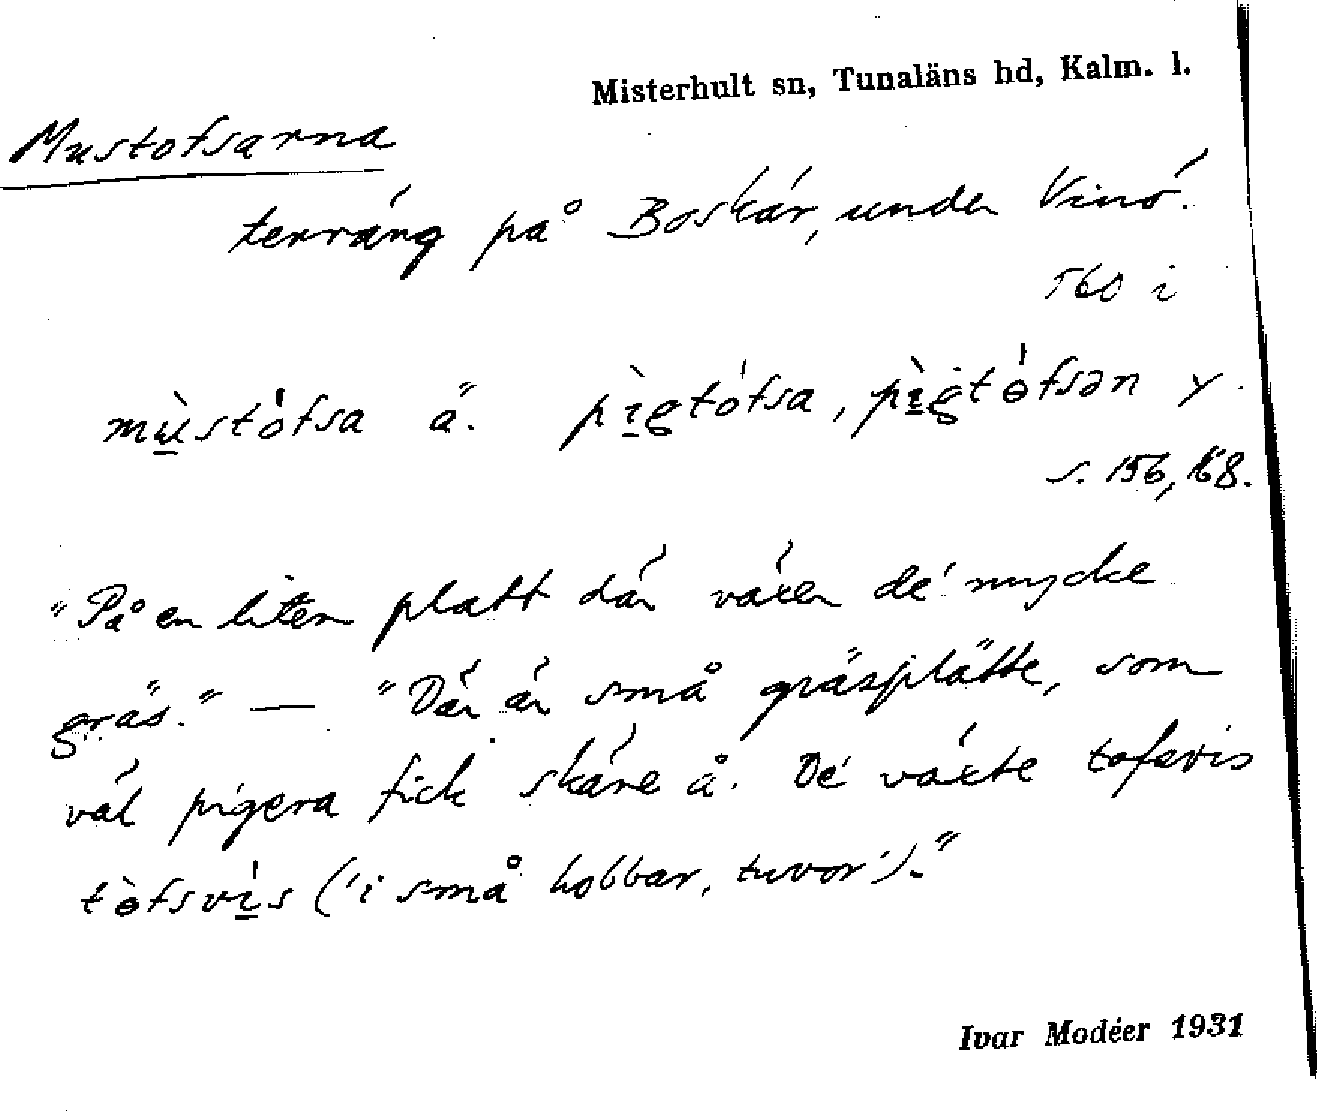 Misterhult sn, Tunaläns hd, Kalm. l.
Mustofsarna
terräng på Boskär, under Vinö.
560 i
mùstófsa ä. pìgtófsa, pìgtófsən y.
s. 156, 168.
"På en liten platt där växer dé mycke
gräs." — "Där är små gräsplätte, som
väl pigera fick skäre å. Dé växte tofsvis
tòfsvís ('i små hobbar, tuvor')."
Ivar Modéer 1931